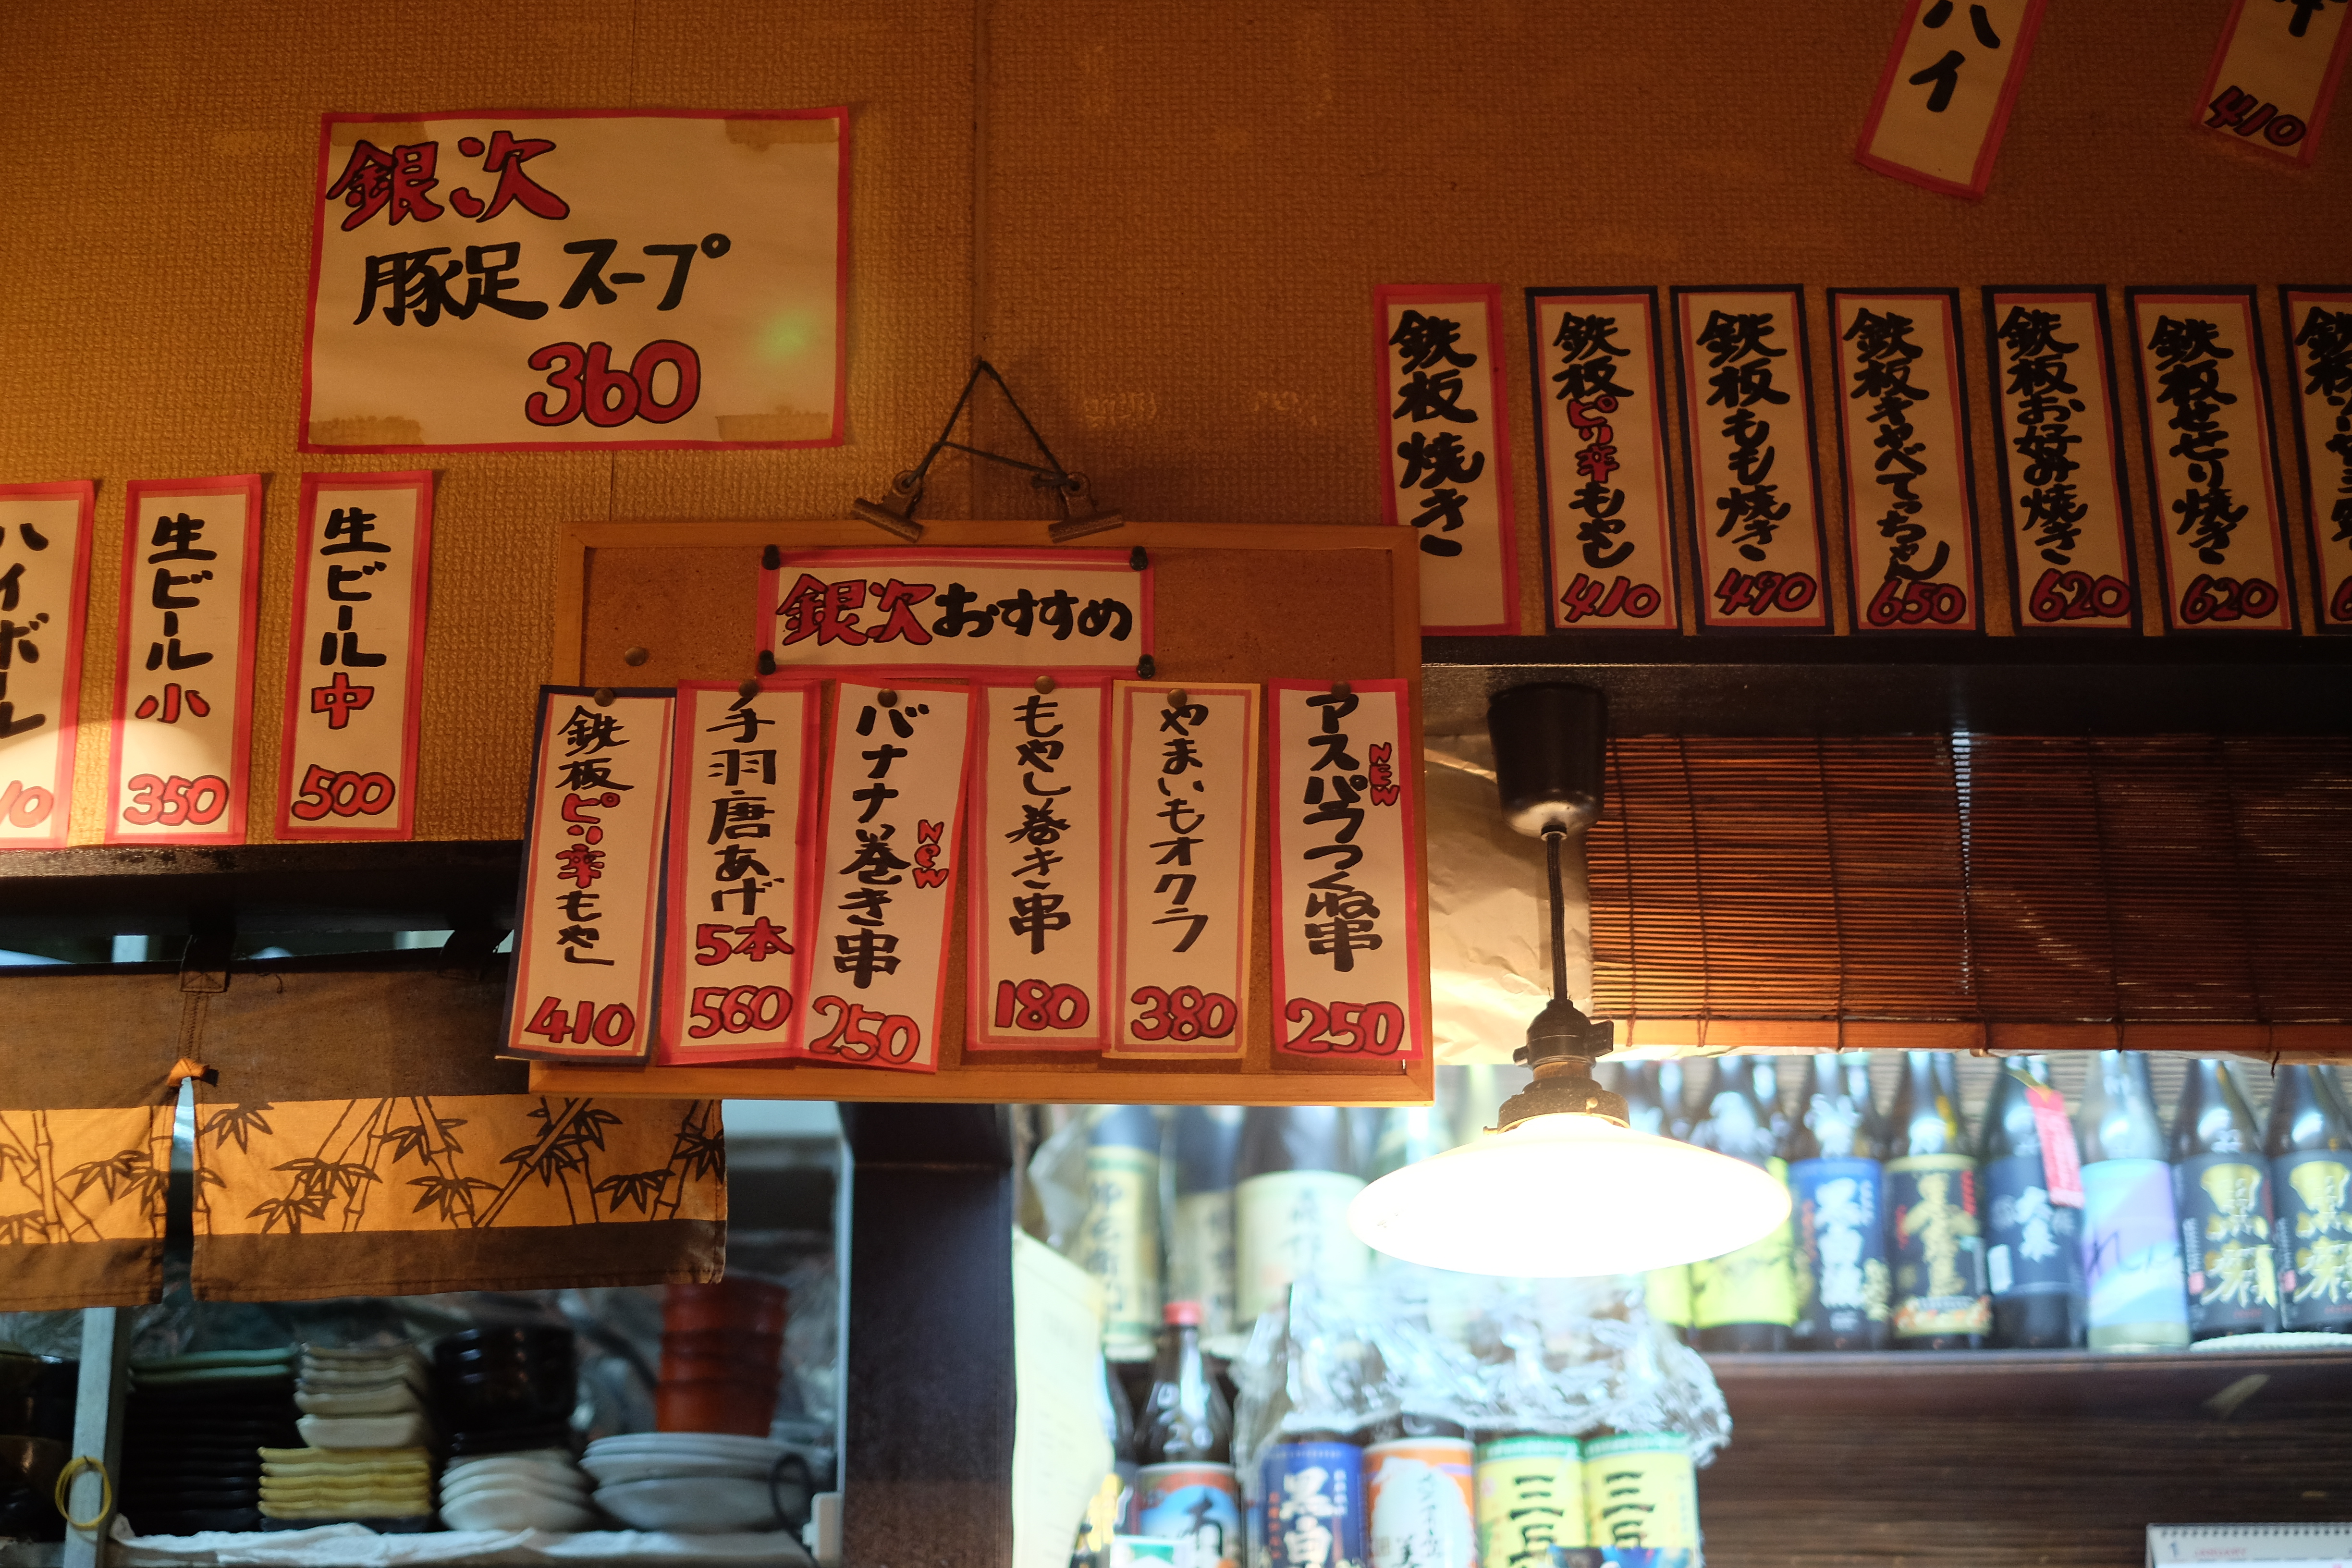 銀次
豚足スープ
360
ハイ
410
ハイボール
10
生ビール小
350
生ビール中
500
銀次おすすめ
鉄板ピリ辛もやし
410
手羽唐あげ
5本
560
バナナ巻き串
NEW
250
もやし巻き串
180
やまいもオクラ
380
アスパラつくね串
NEW
250
鉄板焼き
鉄板ピリ辛もやし
410
鉄板もも焼き
490
鉄板キャベてっちゃん
650
鉄板お好み焼き
620
鉄板せせり焼き
620
鉄板
黒白波
黒
黒
黒白
三岳
三岳